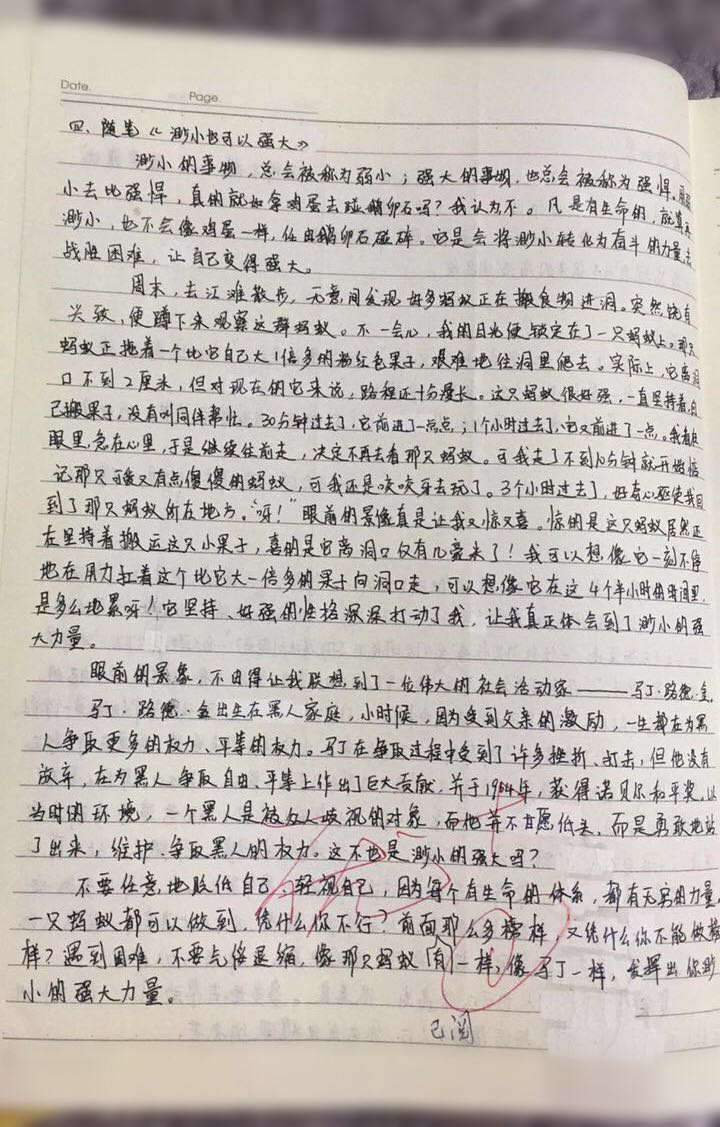 Date.
Page.
四、随笔《渺小也可以强大》
渺小的事物，总会被称为弱小；强大的事物，也总会被称为强悍。用弱
小去比强悍，真的就如拿鸡蛋去碰鹅卵石吗？我认为不。凡是有生命的，就算再
渺小，也不会像鸡蛋一样，任由鹅卵石碰碎。它是会将渺小转化为奋斗的力量，去
战胜困难，让自己变得强大。
周末，去江滩散步，无意间发现好多蚂蚁正在搬食物进洞。突然饶有
兴致，便蹲下来观察这群蚂蚁。不一会心，我的目光便锁定在了一只蚂蚁上。那只
蚂蚁正拖着一个比它自己大1倍多的粉红色果子，艰难地往洞里爬去。实际上，它离洞
口不到2厘米，但对现在的它来说，路程还十分漫长。这只蚂蚁很好强，一直坚持着自
己搬果子，没有叫同伴帮忙。30分钟过去了，它前进了一点点；1个小时过去了，它又前进了一点。我看在
眼里，急在心里，于是继续往前走，决定不再去看那只蚂蚁。可我走了不到10分钟就开始惦
记那只可爱又有点傻傻的蚂蚁，可我还是咬咬牙去玩了。3个小时过去了，好奇心驱使我回
到了那只蚂蚁所在地方。“呀！”眼前的景像真是让我又惊又喜。惊的是这只蚂蚁居然还
在坚持着搬运这只小果子，喜的是它离洞口仅有几毫米了！我可以想像它一刻不停
地在用力扛着这个比它大一倍多的果子向洞口走，可以想像它在这4个半小时的时间里
是多么地累呀！它坚持、好强的性格深深打动了我，让我真正体会到了渺小的强
大力量。
眼前的景象，不由得让我联想到了一位伟大的社会活动家——马丁·路德·金
马丁·路德·金出生在黑人家庭，小时候，因为受到父亲的激励，一生都在为黑
人争取更多的权力、平等的权力。马丁在争取过程中受到了许多挫折、打击，但他没有
放弃，在为黑人争取自由、平等上作出了巨大贡献，并于1964年，获得诺贝尔和平奖。以
当时的环境，一个黑人是被白人歧视的对象，而他并不甘愿低头，而是勇敢地站
了出来，维护、争取黑人的权力。这不也是渺小的强大吗？
不要任意地贬低自己、轻视自己，因为每个有生命的体系，都有无穷的力量。
一只蚂蚁都可以做到，凭什么你不行？前面那么多榜样，又凭什么你不能做榜
样？遇到困难，不要气馁退缩，像那只蚂蚁一样，像马丁一样，发挥出你渺
小的强大力量。
已阅